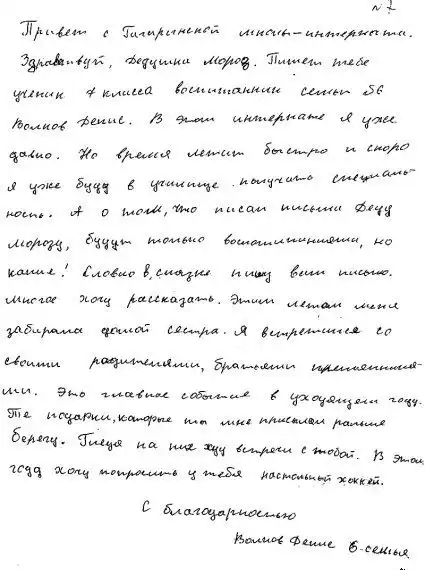 № 7
Привет с Гагаринской школы-интерната.
Здравствуй, Дедушка Мороз. Пишет тебе
ученик 7 класса воспитанник семьи №6
Волков Денис. В этом интернате я уже
давно. Но время летит быстро и скоро
я уже буду в училище получать специаль-
ность. А о том, что писал письма Деду
Морозу, будут только воспоминаниями, но
какие! Словно в сказке пишу вам письмо.
Многое хочу рассказать. Этим летом меня
забирала домой сестра. Я встретился со
своими родителями, братьями племянника-
ми. Это главное событие в уходящем году.
Те подарки, которые ты мне присылал раньше
берегу. Глядя на них жду встречи с тобой. В этом
году хочу попросить у тебя настольный хоккей.
С благодарностью
Волков Денис 6-семья